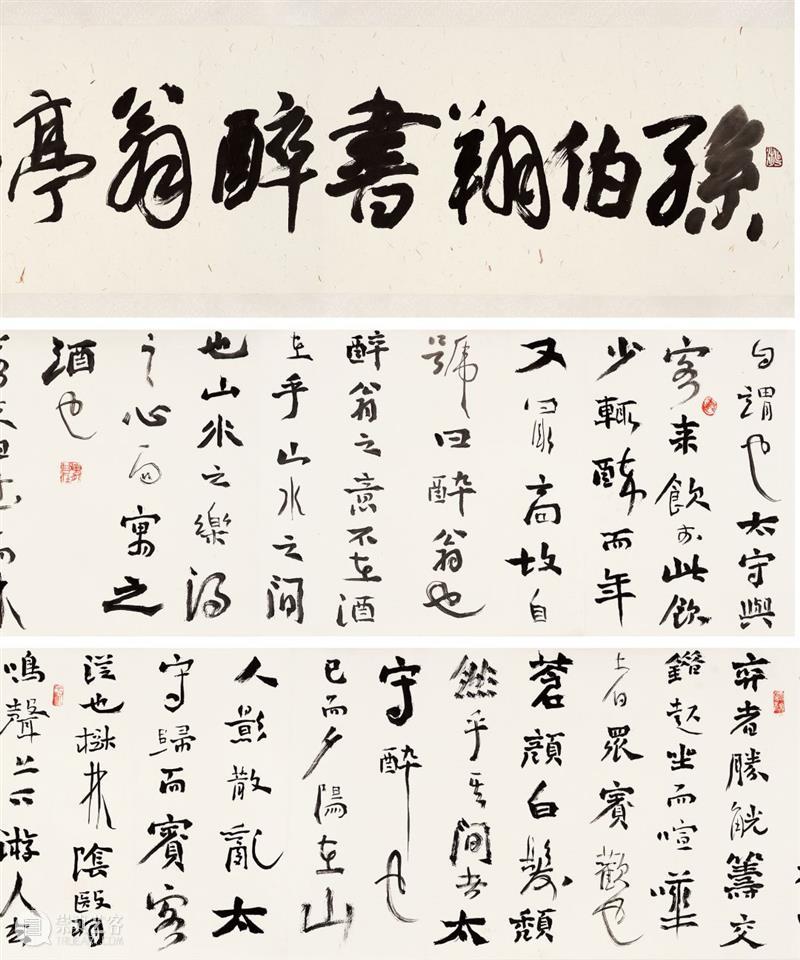 孫伯翔書醉翁亭
自謂也太守與
客来飲於此飲
少輒醉而年
又最高故自
號曰醉翁也
醉翁之意不在酒
在乎山水之間
也山水之樂得
之心而寓之
酒也
弈者勝觥籌交
錯起坐而喧譁
者眾賓歡也
蒼顏白髮頹
然乎其間者太
守醉也
已而夕陽在山
人影散亂太
守歸而賓客
從也樹林陰翳
鳴聲上下游人去
崇真艺客